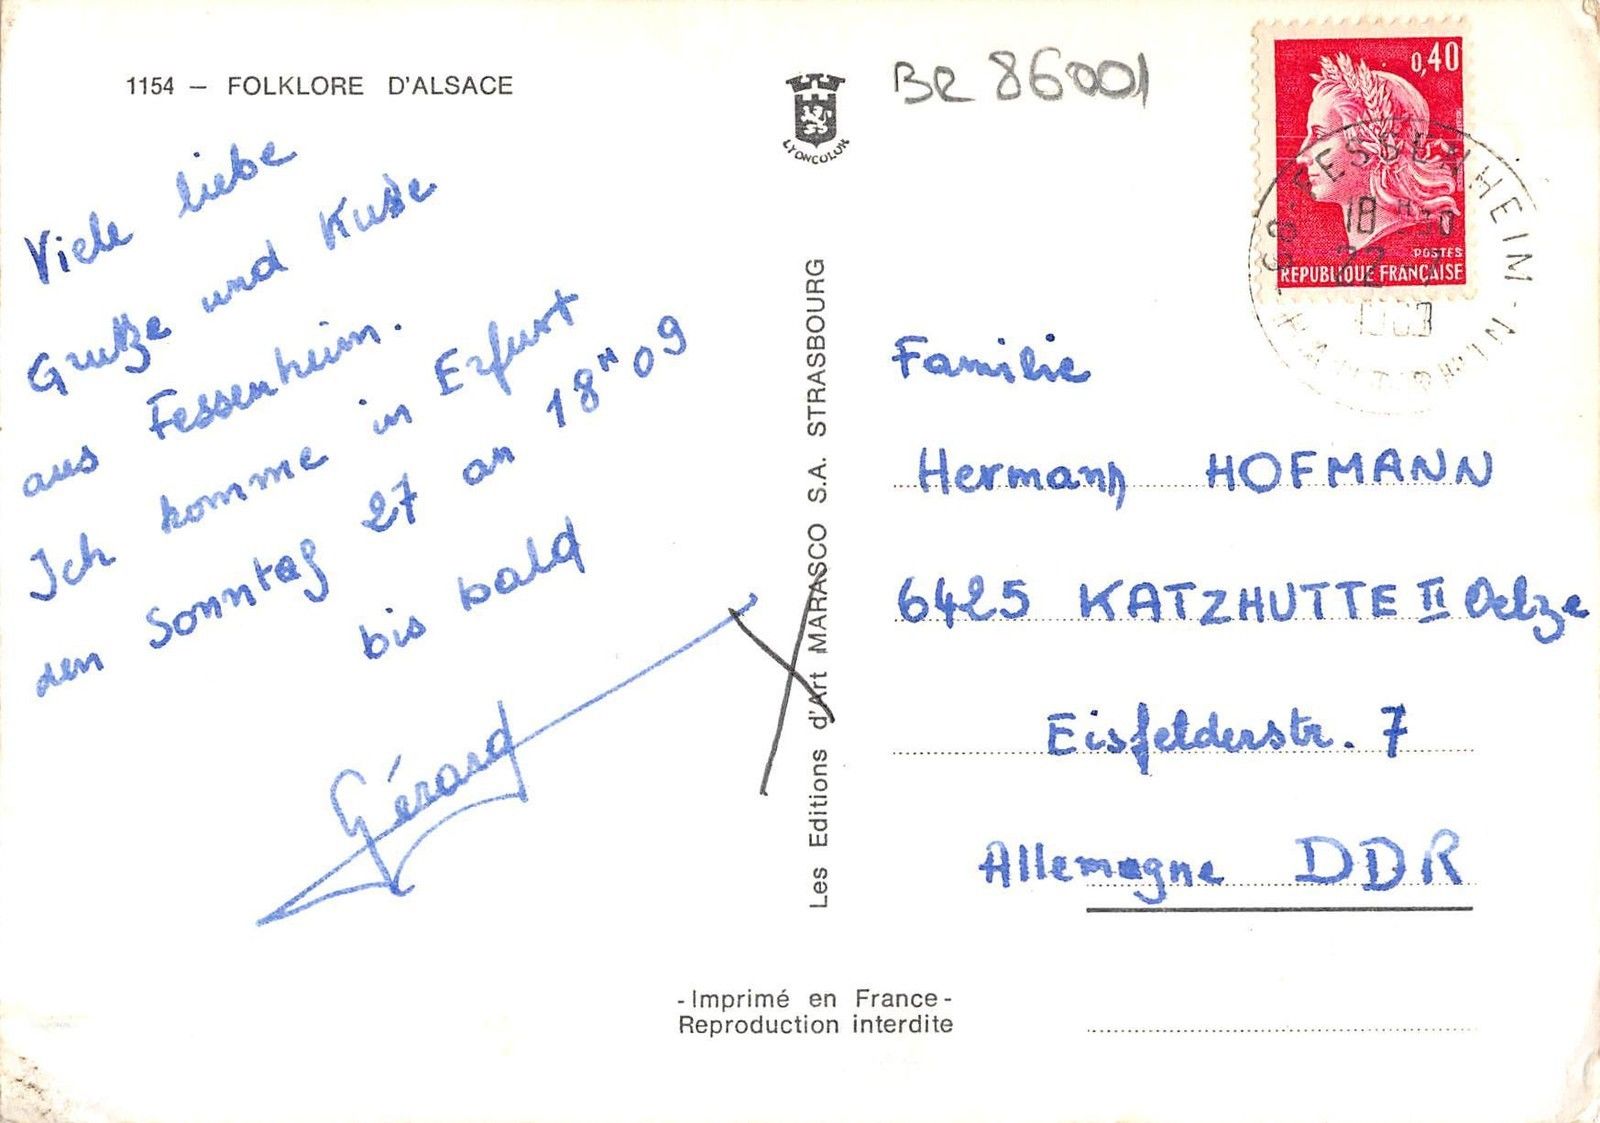 1154 – FOLKLORE D'ALSACE
Viele liebe
Grutze und Kusse
aus Fessenheim.
Ich komme in Erfurt
den Sonntag 27 an 18ʰ 09
bis bald
Gérard
LYONCOLOR
Les Editions d'Art MARASCO S.A. STRASBOURG
BR 86001
0,40
POSTES
REPUBLIQUE FRANÇAISE
68 - FESSENHEIM -
18 H 30
22 - 7
Familie
Hermann HOFMANN
6425 KATZHUTTE II Oelze
Eisfelderstr. 7
Allemagne DDR
- Imprimé en France -
Reproduction interdite